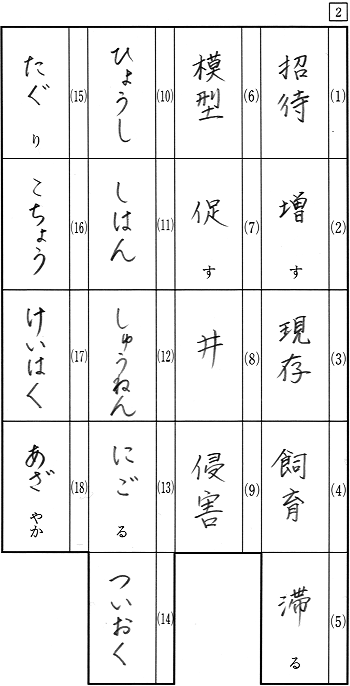 2
(1) 招待
(2) 増 す
(3) 現存
(4) 飼育
(5) 滞 る
(6) 模型
(7) 促 す
(8) 井
(9) 侵害
(10) ひょうし
(11) しはん
(12) しゅうねん
(13) にご る
(14) ついおく
(15) たぐ り
(16) こちょう
(17) けいはく
(18) あざ やか